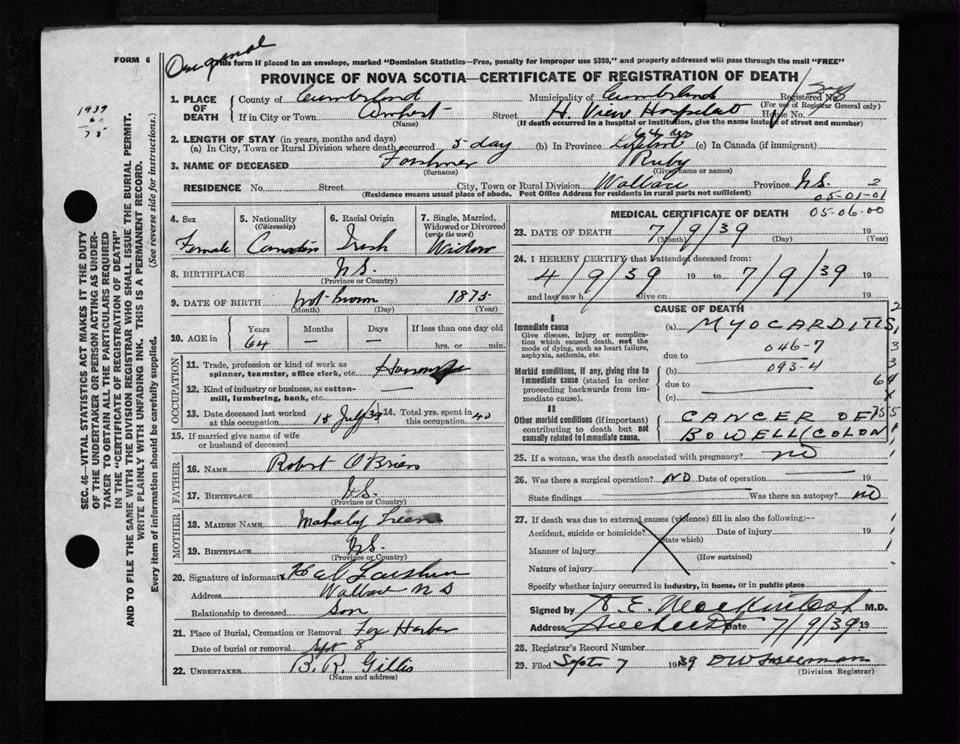 FORM 6
Original
This form if placed in an envelope, marked "Dominion Statistics—Free, penalty for improper use $300," and properly addressed will pass through the mail "FREE"
PROVINCE OF NOVA SCOTIA—CERTIFICATE OF REGISTRATION OF DEATH
1939
1. PLACE OF DEATH
County of Cumberland Municipality of Cumberland Registered No.
(For use of Registrar General only)
If in City or Town Amherst Street H. View Hospital House No.
(Name) (If death occurred in a hospital or institution, give the name instead of street and number)
2. LENGTH OF STAY (in years, months and days)
(a) In City, Town or Rural Division where death occurred 5-day (b) In Province 64 yrs Lifetime (c) In Canada (if immigrant)
3. NAME OF DECEASED Forshner Ruby
(Surname) (Given name or names)
RESIDENCE No. Street City, Town or Rural Division Wallace Province N.S. 2
(Residence means usual place of abode. Post Office Address for residents in rural parts not sufficient)
05-01-01
05-06-00
4. Sex Female
5. Nationality (Citizenship) Canadian
6. Racial Origin Irish
7. Single, Married, Widowed or Divorced (write the word) Widow
8. BIRTHPLACE N.S.
(Province or Country)
9. DATE OF BIRTH not known 1875
(Month) (Day) (Year)
10. AGE in Years Months Days If less than one day old
64 — — hrs. or min.
OCCUPATION
11. Trade, profession or kind of work as spinner, teamster, office clerk, etc.
12. Kind of industry or business, as cotton-mill, lumbering, bank, etc.
13. Date deceased last worked at this occupation 18 July/39 14. Total yrs. spent in this occupation 40
15. If married give name of wife or husband of deceased
FATHER
16. NAME Robert O'Brien
17. BIRTHPLACE N.S.
(Province or Country)
MOTHER
18. MAIDEN NAME Mahaly
19. BIRTHPLACE N.S.
(Province or Country)
20. Signature of informant
Address Wallace N S
Relationship to deceased Son
21. Place of Burial, Cremation or Removal Fox Harbor
Date of burial or removal Sept 8
22. UNDERTAKER B. R. Gillis
(Name and address)
MEDICAL CERTIFICATE OF DEATH
23. DATE OF DEATH 7/9/39 19
(Month) (Day) (Year)
24. I HEREBY CERTIFY that I attended deceased from:
4/9/39 19 to 7/9/39 19
and last saw h alive on 19
CAUSE OF DEATH
I
Immediate cause
Give disease, injury or complication which caused death, not the mode of dying, such as heart failure, asphyxia, asthenia, etc.
(a) MYOCARDITIS
046-7
due to
Morbid conditions, if any, giving rise to immediate cause (stated in order proceeding backwards from immediate cause).
(b) 093-4
due to
(c)
II
Other morbid conditions (if important) contributing to death but not causally related to immediate cause.
CANCER OF
BOWELL (COLON
25. If a woman, was the death associated with pregnancy? no
26. Was there a surgical operation? NO Date of operation 19
State findings Was there an autopsy? NO
27. If death was due to external causes (violence) fill in also the following:—
Accident, suicide or homicide? Date of injury 19
(State which)
Manner of injury
(How sustained)
Nature of injury
Specify whether injury occurred in industry, in home, or in public place
Signed by A. E. MacKintosh M.D.
Address Date 7/9/39 19
28. Registrar's Record Number
29. Filed Septr 7 1939 D W Freeman
(Division Registrar)
SEC. 46—VITAL STATISTICS ACT MAKES IT THE DUTY
OF THE UNDERTAKER OR PERSON ACTING AS UNDERTAKER TO OBTAIN ALL THE PARTICULARS REQUIRED
IN THE "CERTIFICATE OF REGISTRATION OF DEATH"
AND TO FILE THE SAME WITH THE DIVISION REGISTRAR WHO SHALL ISSUE THE BURIAL PERMIT.
WRITE PLAINLY WITH UNFADING INK. THIS IS A PERMANENT RECORD.
Every item of information should be carefully supplied. (See reverse side for instructions.)